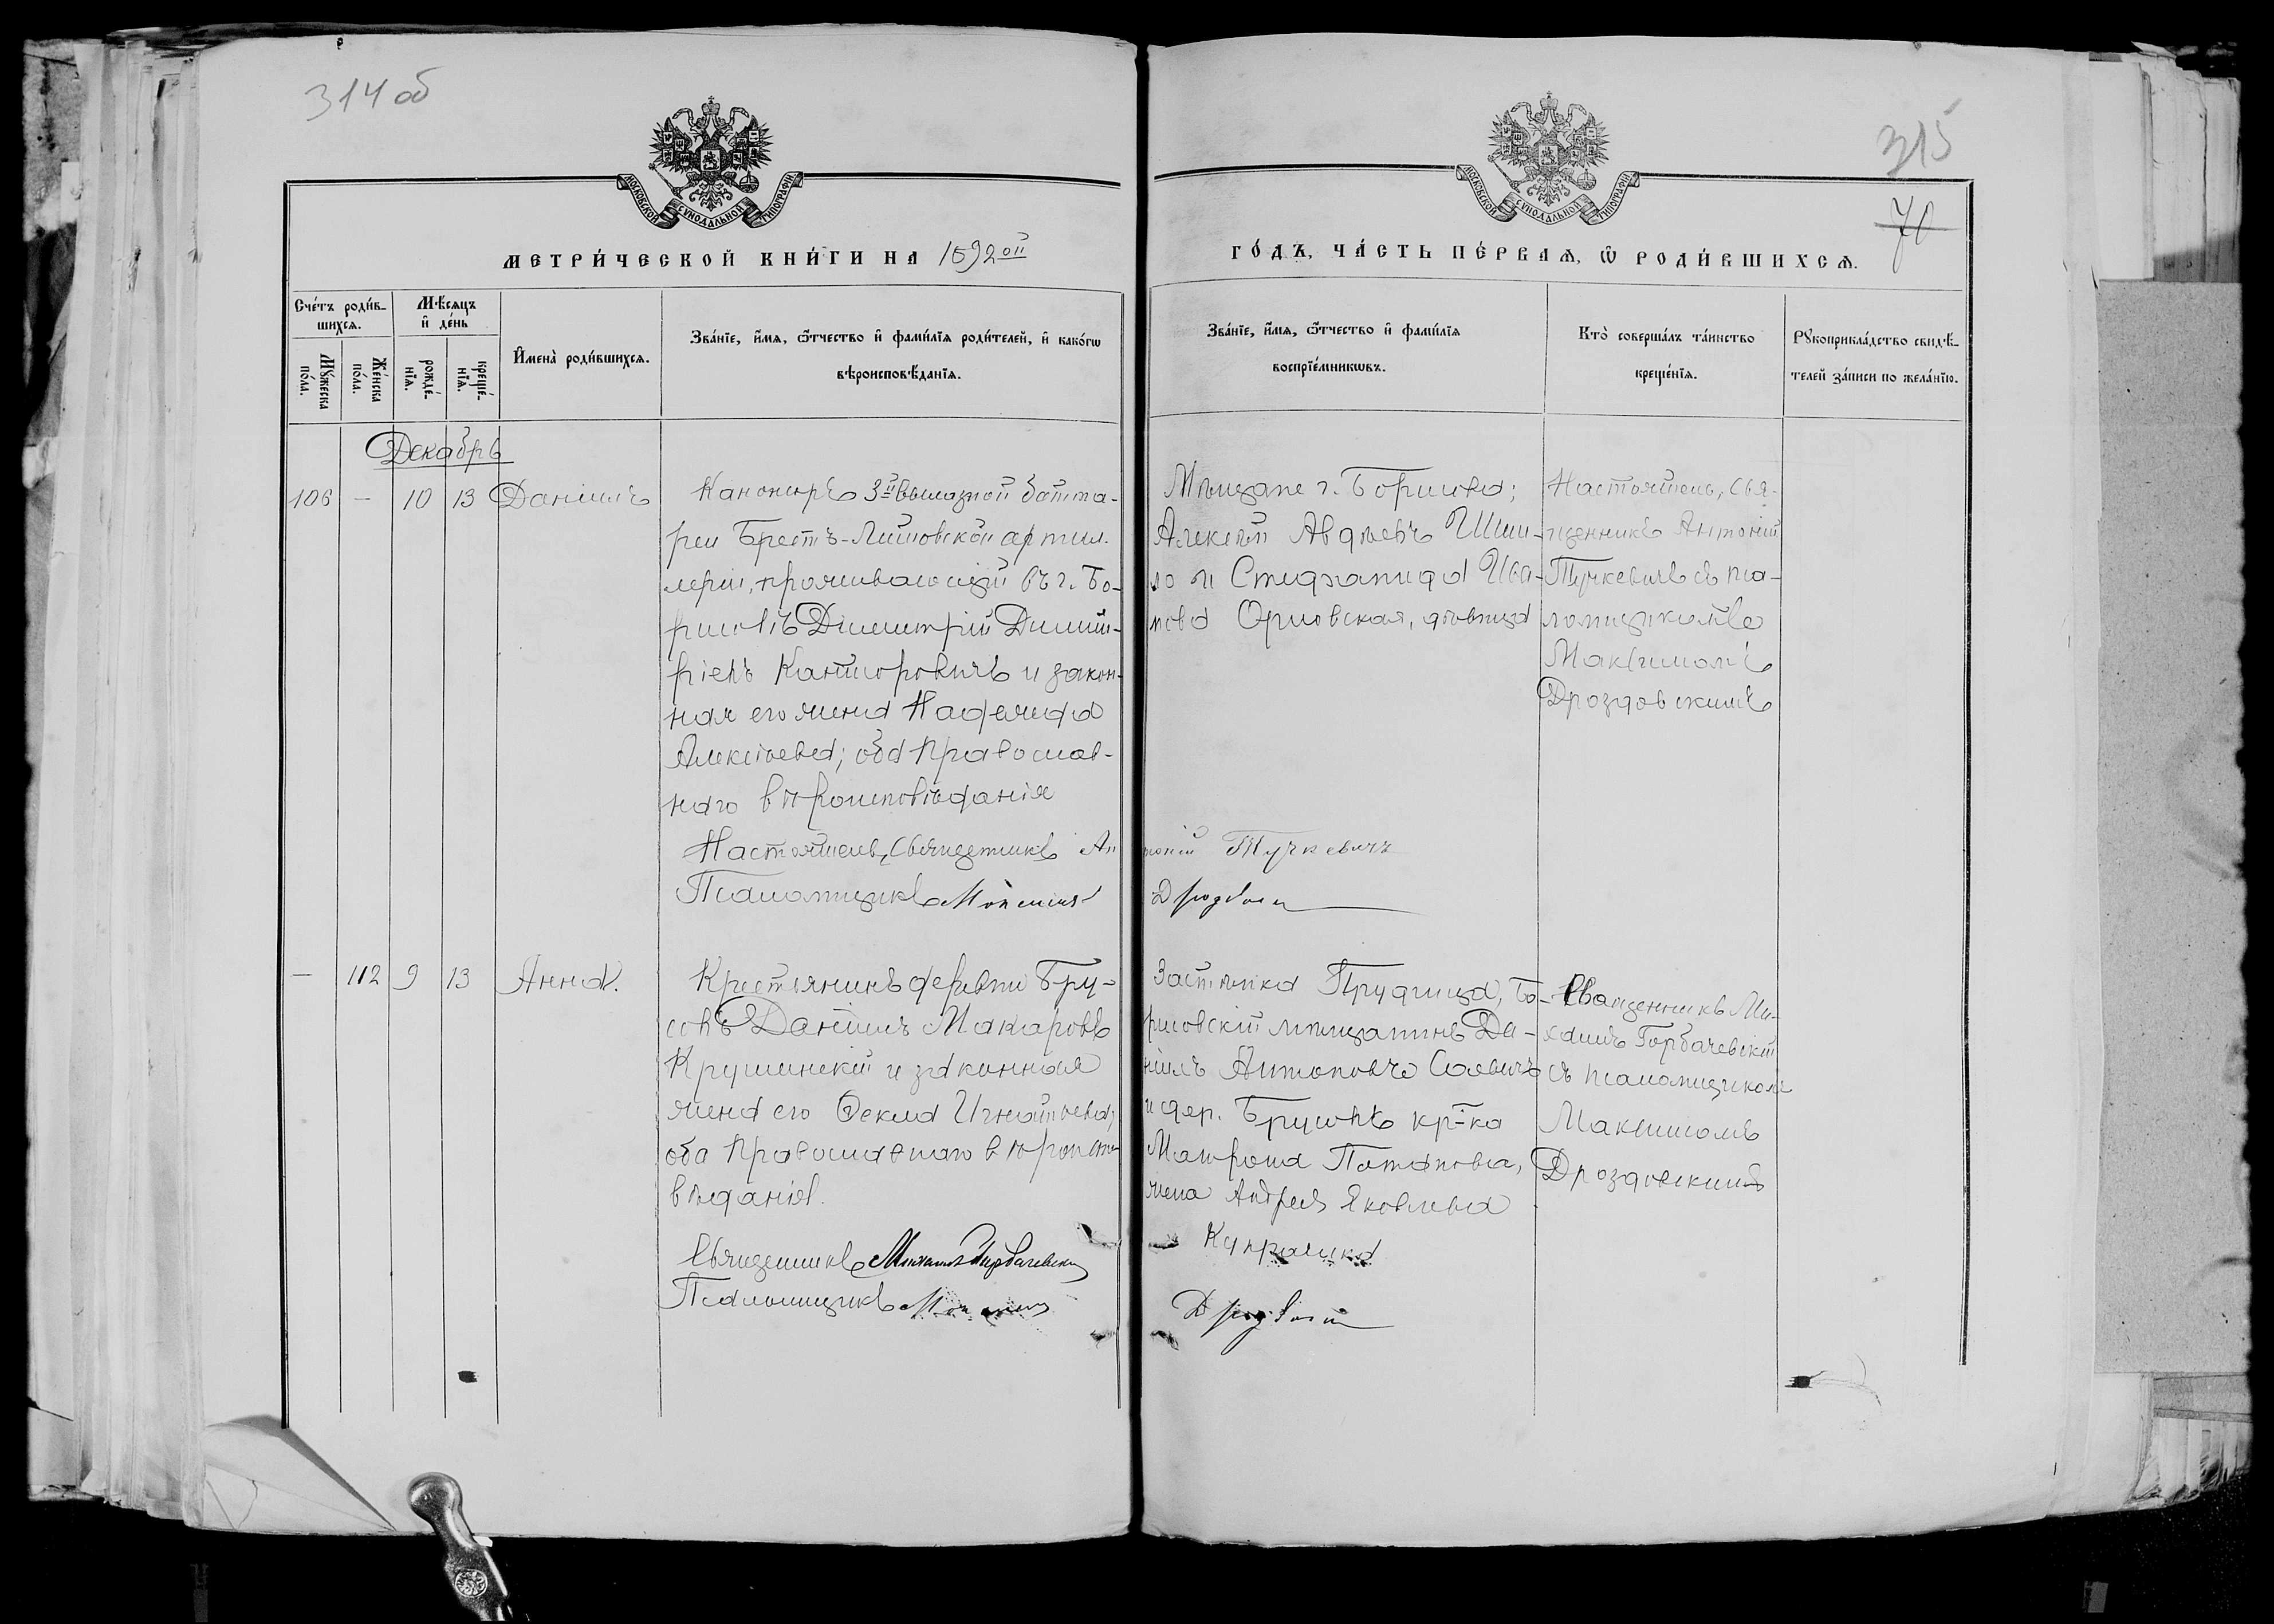 314 об
315
70
МОСКОВСКОЙ СѴНОДАЛЬНОЙ ТИПОГРАФІИ
МОСКОВСКОЙ СѴНОДАЛЬНОЙ ТИПОГРАФІИ
МЕТРИ́ЧЕСКОЙ КНИ́ГИ НА 1892ой
ГО́ДЪ, ЧА́СТЬ ПЕ́РВАѦ, Ѡ РОДИ́ВШИХСѦ.
Сче́тъ роди́в-
шихсѧ.
Мꙋ́жеска
по́ла.
Же́нска
по́ла.
Мѣ́сѧцъ
и҆ де́нь
рожде́-
нїѧ.
креще́-
нїѧ.
И҆мена̀ роди́вшихсѧ.
Зва́нїе, и҆́мѧ, ѻ҆́тчество и҆ фами́лїѧ роди́телей, и҆ како́гѡ
вѣроисповѣ́данїѧ.
Зва́нїе, и҆́мѧ, ѻ҆́тчество и҆ фами́лїѧ
воспрїе́мникѡвъ.
Кто̀ соверша́лъ та́инство
креще́нїѧ.
Рꙋкоприкла́дство свидѣ́-
телей за́писи по жела́нїю.
Декабрь
106 — 10 13 Даніилъ
Канониръ 3й вылазной батта-
реи Брестъ-Литовской артил-
леріи, проживающій въ г. Бо-
рисовѣ Димитрій Димит-
ріевъ Канторовичъ и закон-
ная его жена Надежда
Алексѣева; оба Православ-
наго вѣроисповѣданія
Мѣщане г. Борисова;
Алексѣй Авдѣевъ Шии-
ло и Стефанида Ива-
нова Орловская, дѣвица
Настоятель, Свя-
щенникъ Антоній
Тучкевичъ съ пса-
ломщикомъ
Максимомъ
Дроздовскимъ
Настоятель, Священникъ Антоній Тучкевичъ
Псаломщикъ Максимъ Дроздовскій
— 112 9 13 Анна.
Крестьянинъ деревни Бру-
совъ Даніилъ Макаровъ
Крушинскій и законная
жена его Ѳекла Игнатьева;
оба Православнаго вѣроиспо-
вѣданія.
Застѣнка Прудища, Бо-
рисовскій мѣщанинъ Да-
ніилъ Антоновъ Саевичъ
и дер. Брусовъ кр-ка
Матрона Потапова,
жена Андрея Яковлева
Купраша
Священникъ Ми-
хаилъ Горбачевскій
съ псаломщикомъ
Максимомъ
Дроздовскимъ
Священникъ Михаилъ Горбачевскій
Псаломщикъ Максимъ Дроздовскій